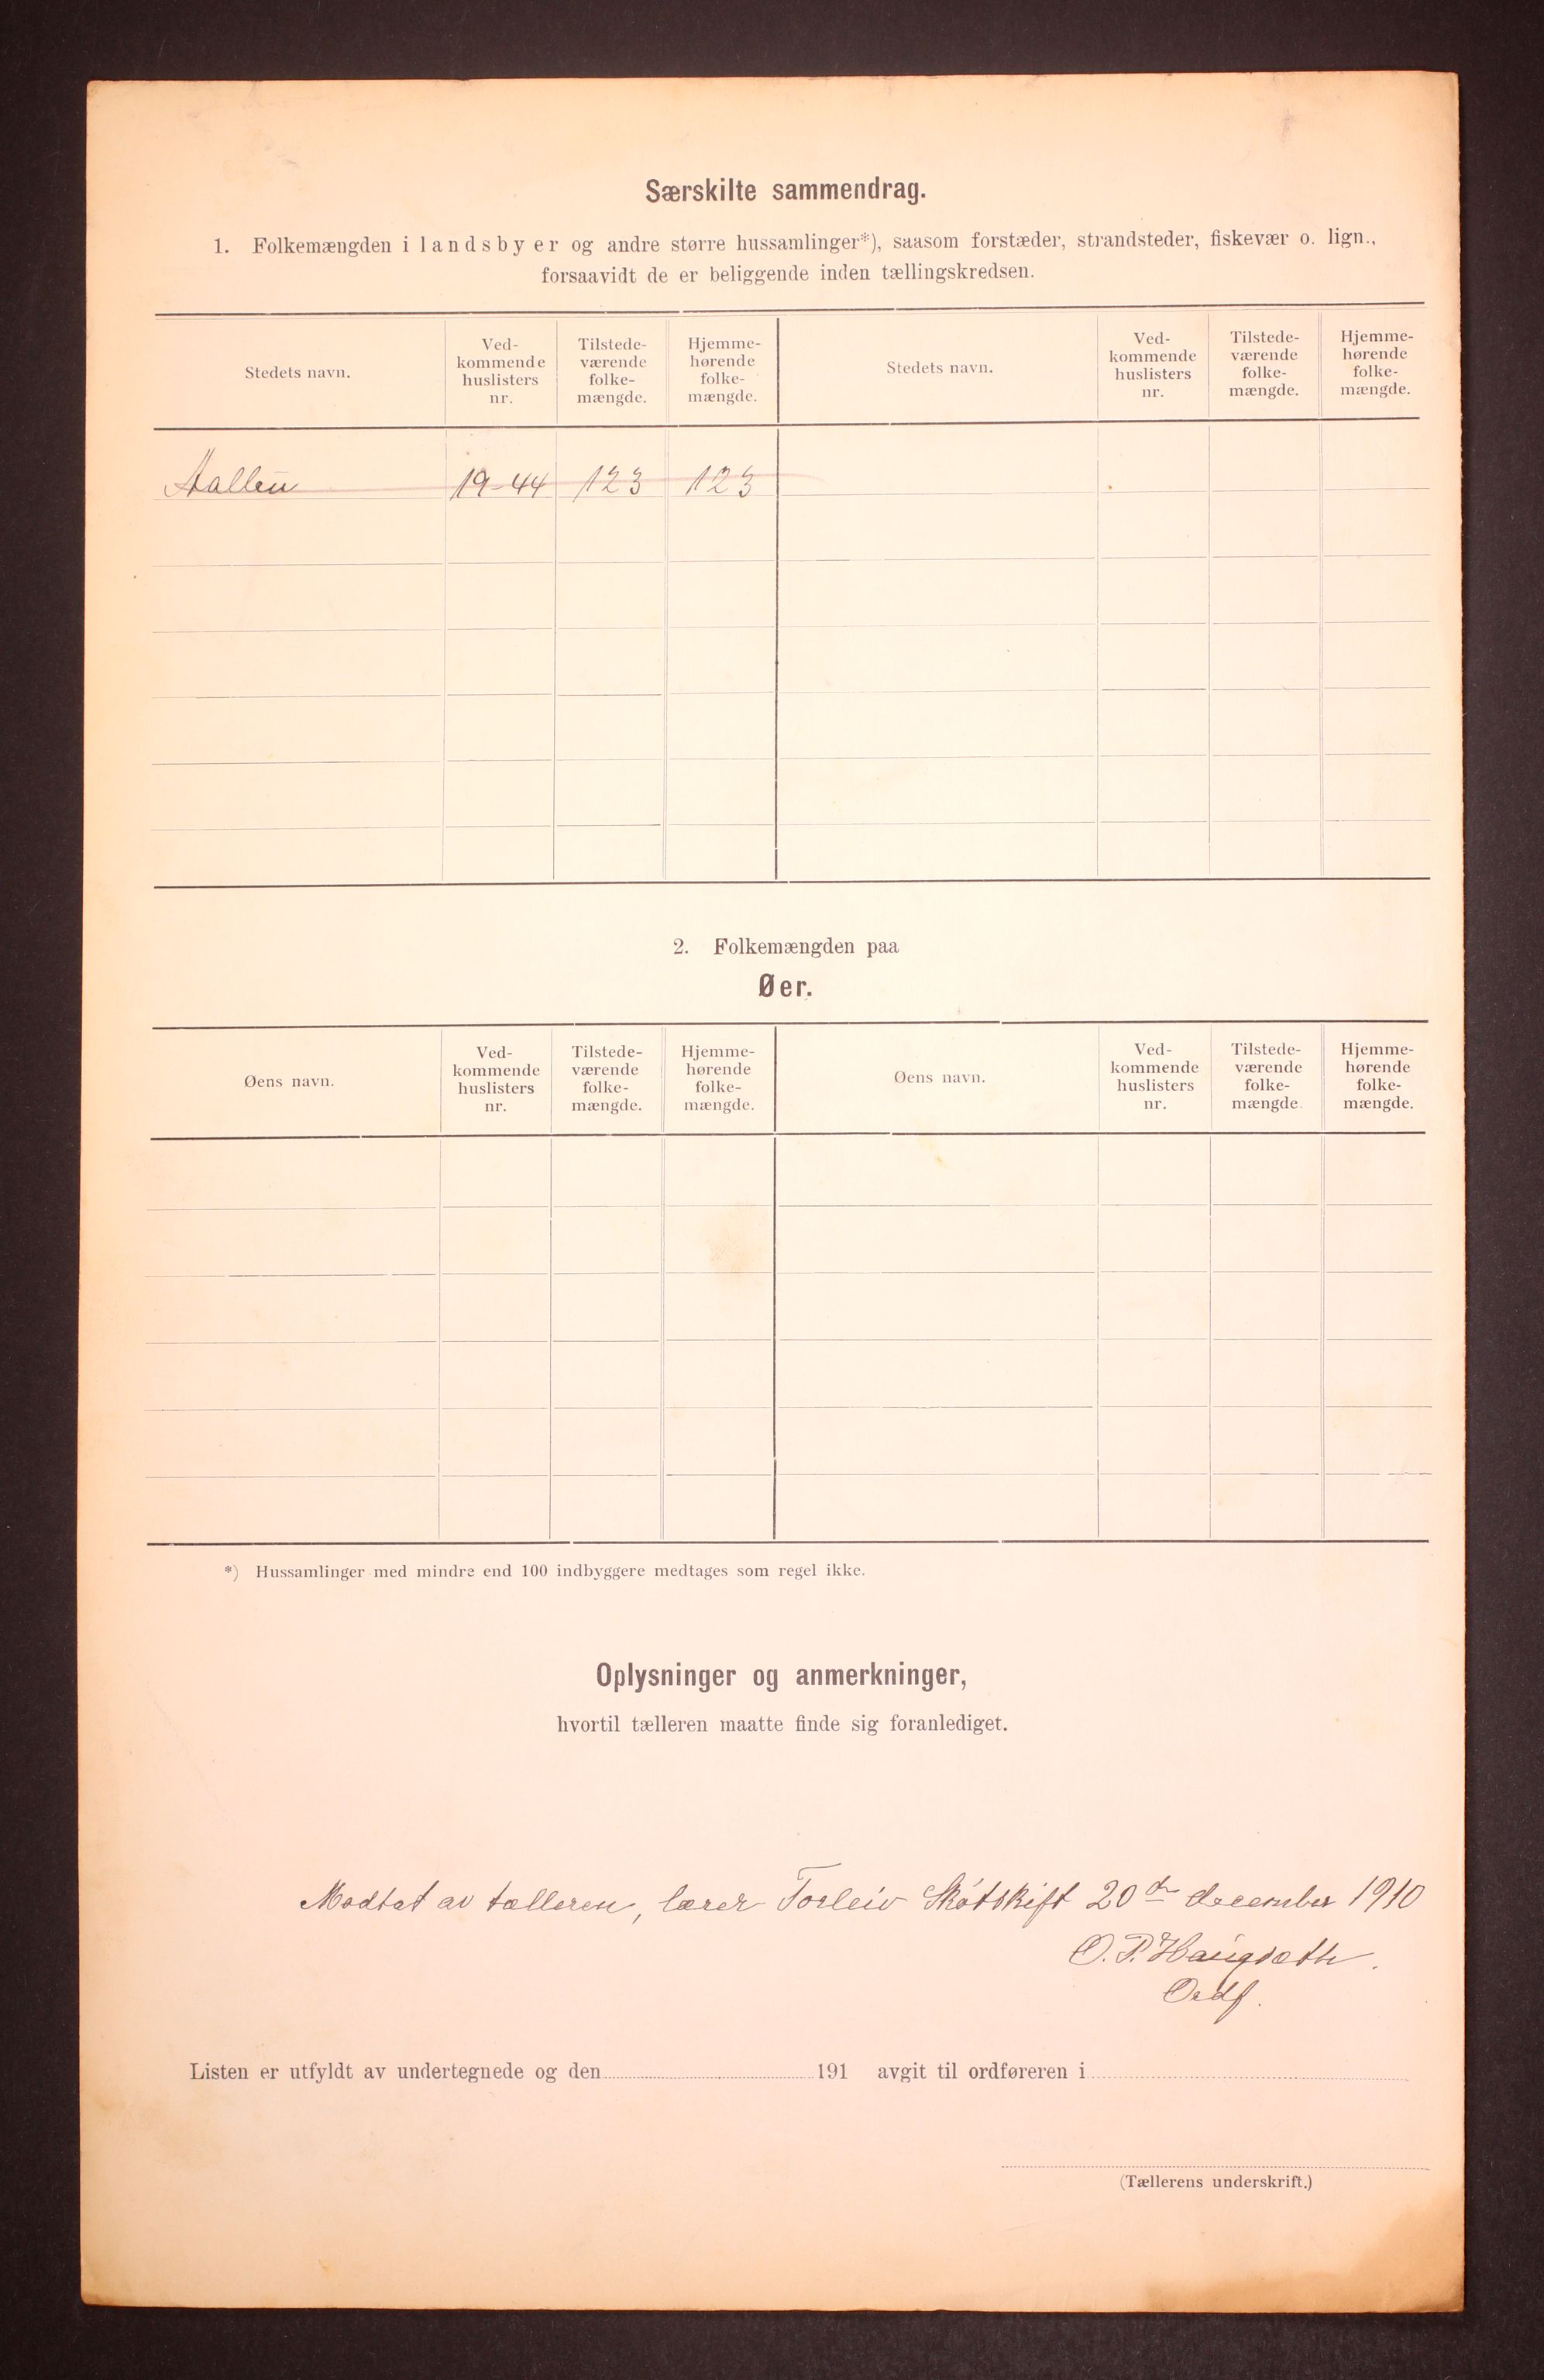 Særskilte sammendrag.
1. Folkemængden i landsbyer og andre større hussamlinger*), saasom forstæder, strandsteder, fiskevær o. lign.,
forsaavidt de er beliggende inden tællingskredsen.
Stedets navn. Ved-kommende huslisters nr. Tilstede-værende folke-mængde. Hjemme-hørende folke-mængde. Stedets navn. Ved-kommende huslisters nr. Tilstede-værende folke-mængde. Hjemme-hørende folke-mængde.
19-44 123 123
2. Folkemængden paa
Øer.
Øens navn. Ved-kommende huslisters nr. Tilstede-værende folke-mængde. Hjemme-hørende folke-mængde. Øens navn. Ved-kommende huslisters nr. Tilstede-værende folke-mængde Hjemme-hørende folke-mængde.
*) Hussamlinger med mindre end 100 indbyggere medtages som regel ikke.
Oplysninger og anmerkninger,
hvortil tælleren maatte finde sig foranlediget.
Modtat av tælleren, lærer Torleiv 20de december 1910
O. P. Haugsæth.
Ordf.
Listen er utfyldt av undertegnede og den 191 avgit til ordføreren i
(Tællerens underskrift.)